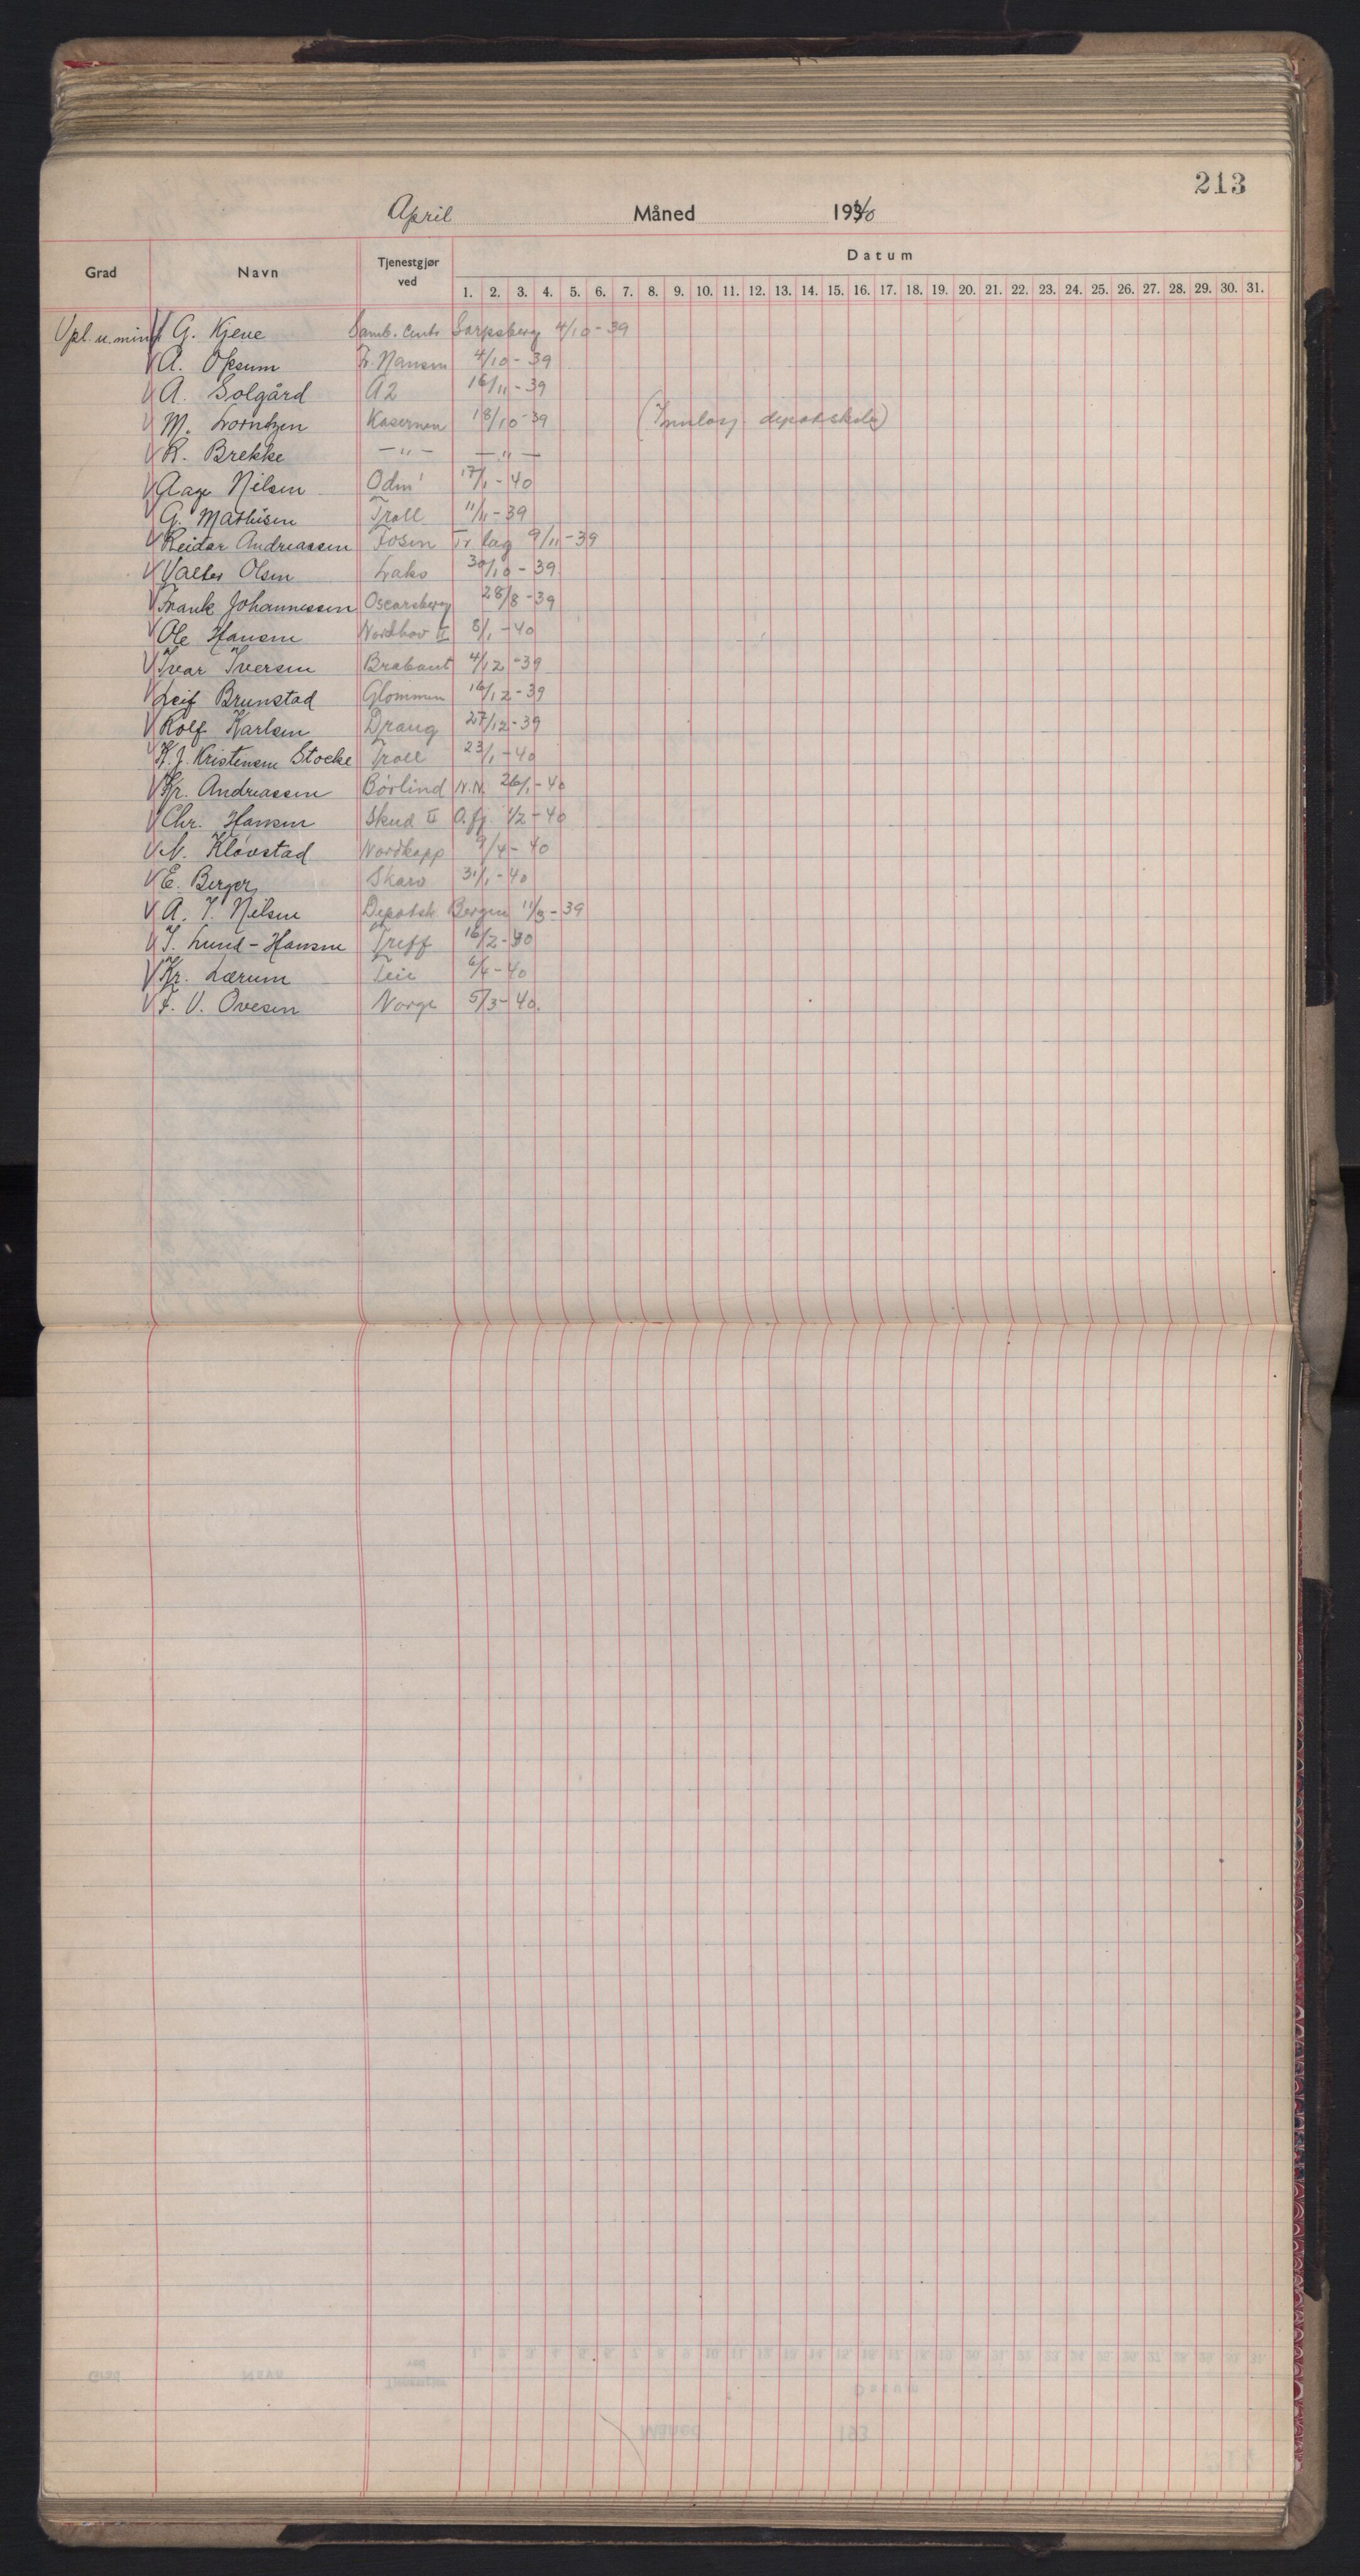 213
April Måned 1940
Grad Navn Tjenestgjør ved Datum
1. 2. 3. 4. 5. 6. 7. 8. 9. 10. 11. 12. 13. 14. 15. 16. 17. 18. 19. 20. 21. 22. 23. 24. 25. 26. 27. 28. 29. 30. 31.
Vpl. u. min G. Kjene Samb. Sarpsborg 4/10-39
A. Opsum Fr. Nansen 4/10-39
A. Solgård A2 16/11-39
M. Lorntzen Kasernen 18/10-39 (Innlosj. depotskole)
R. Brekke —"— —"—
Aage Nilsen Odin 17/1-40
G. Mathisen Troll 11/11-39
Reidar Andreassen Fosen Tr lag 9/11-39
Valter Olsen Lako 30/10-39
Frank Johannessen Oscarsborg 28/8-39
Ole Hansen Nordhav II 8/1-40
Ivar Iversen Brabant 4/12-39
Leif Brunstad Glommen 16/12-39
Rolf Karlsen Draug 27/12-39
K. J. Kristensen Stocke Troll 23/1-40
Kr. Andreassen Børlind N.N. 26/1-40
Chr. Hansen Skud II O.fj. 1/2-40
N. Kløvstad Nordkapp 9/4-40
E. Berger Skarv 31/1-40
A. J. Nilsen Depotsk Bergen 11/3-39
J. Lund-Hansen Treff 16/2-40
Kr. Lærum Teie 6/4-40
F. V. Ovesen Norge 5/3-40.